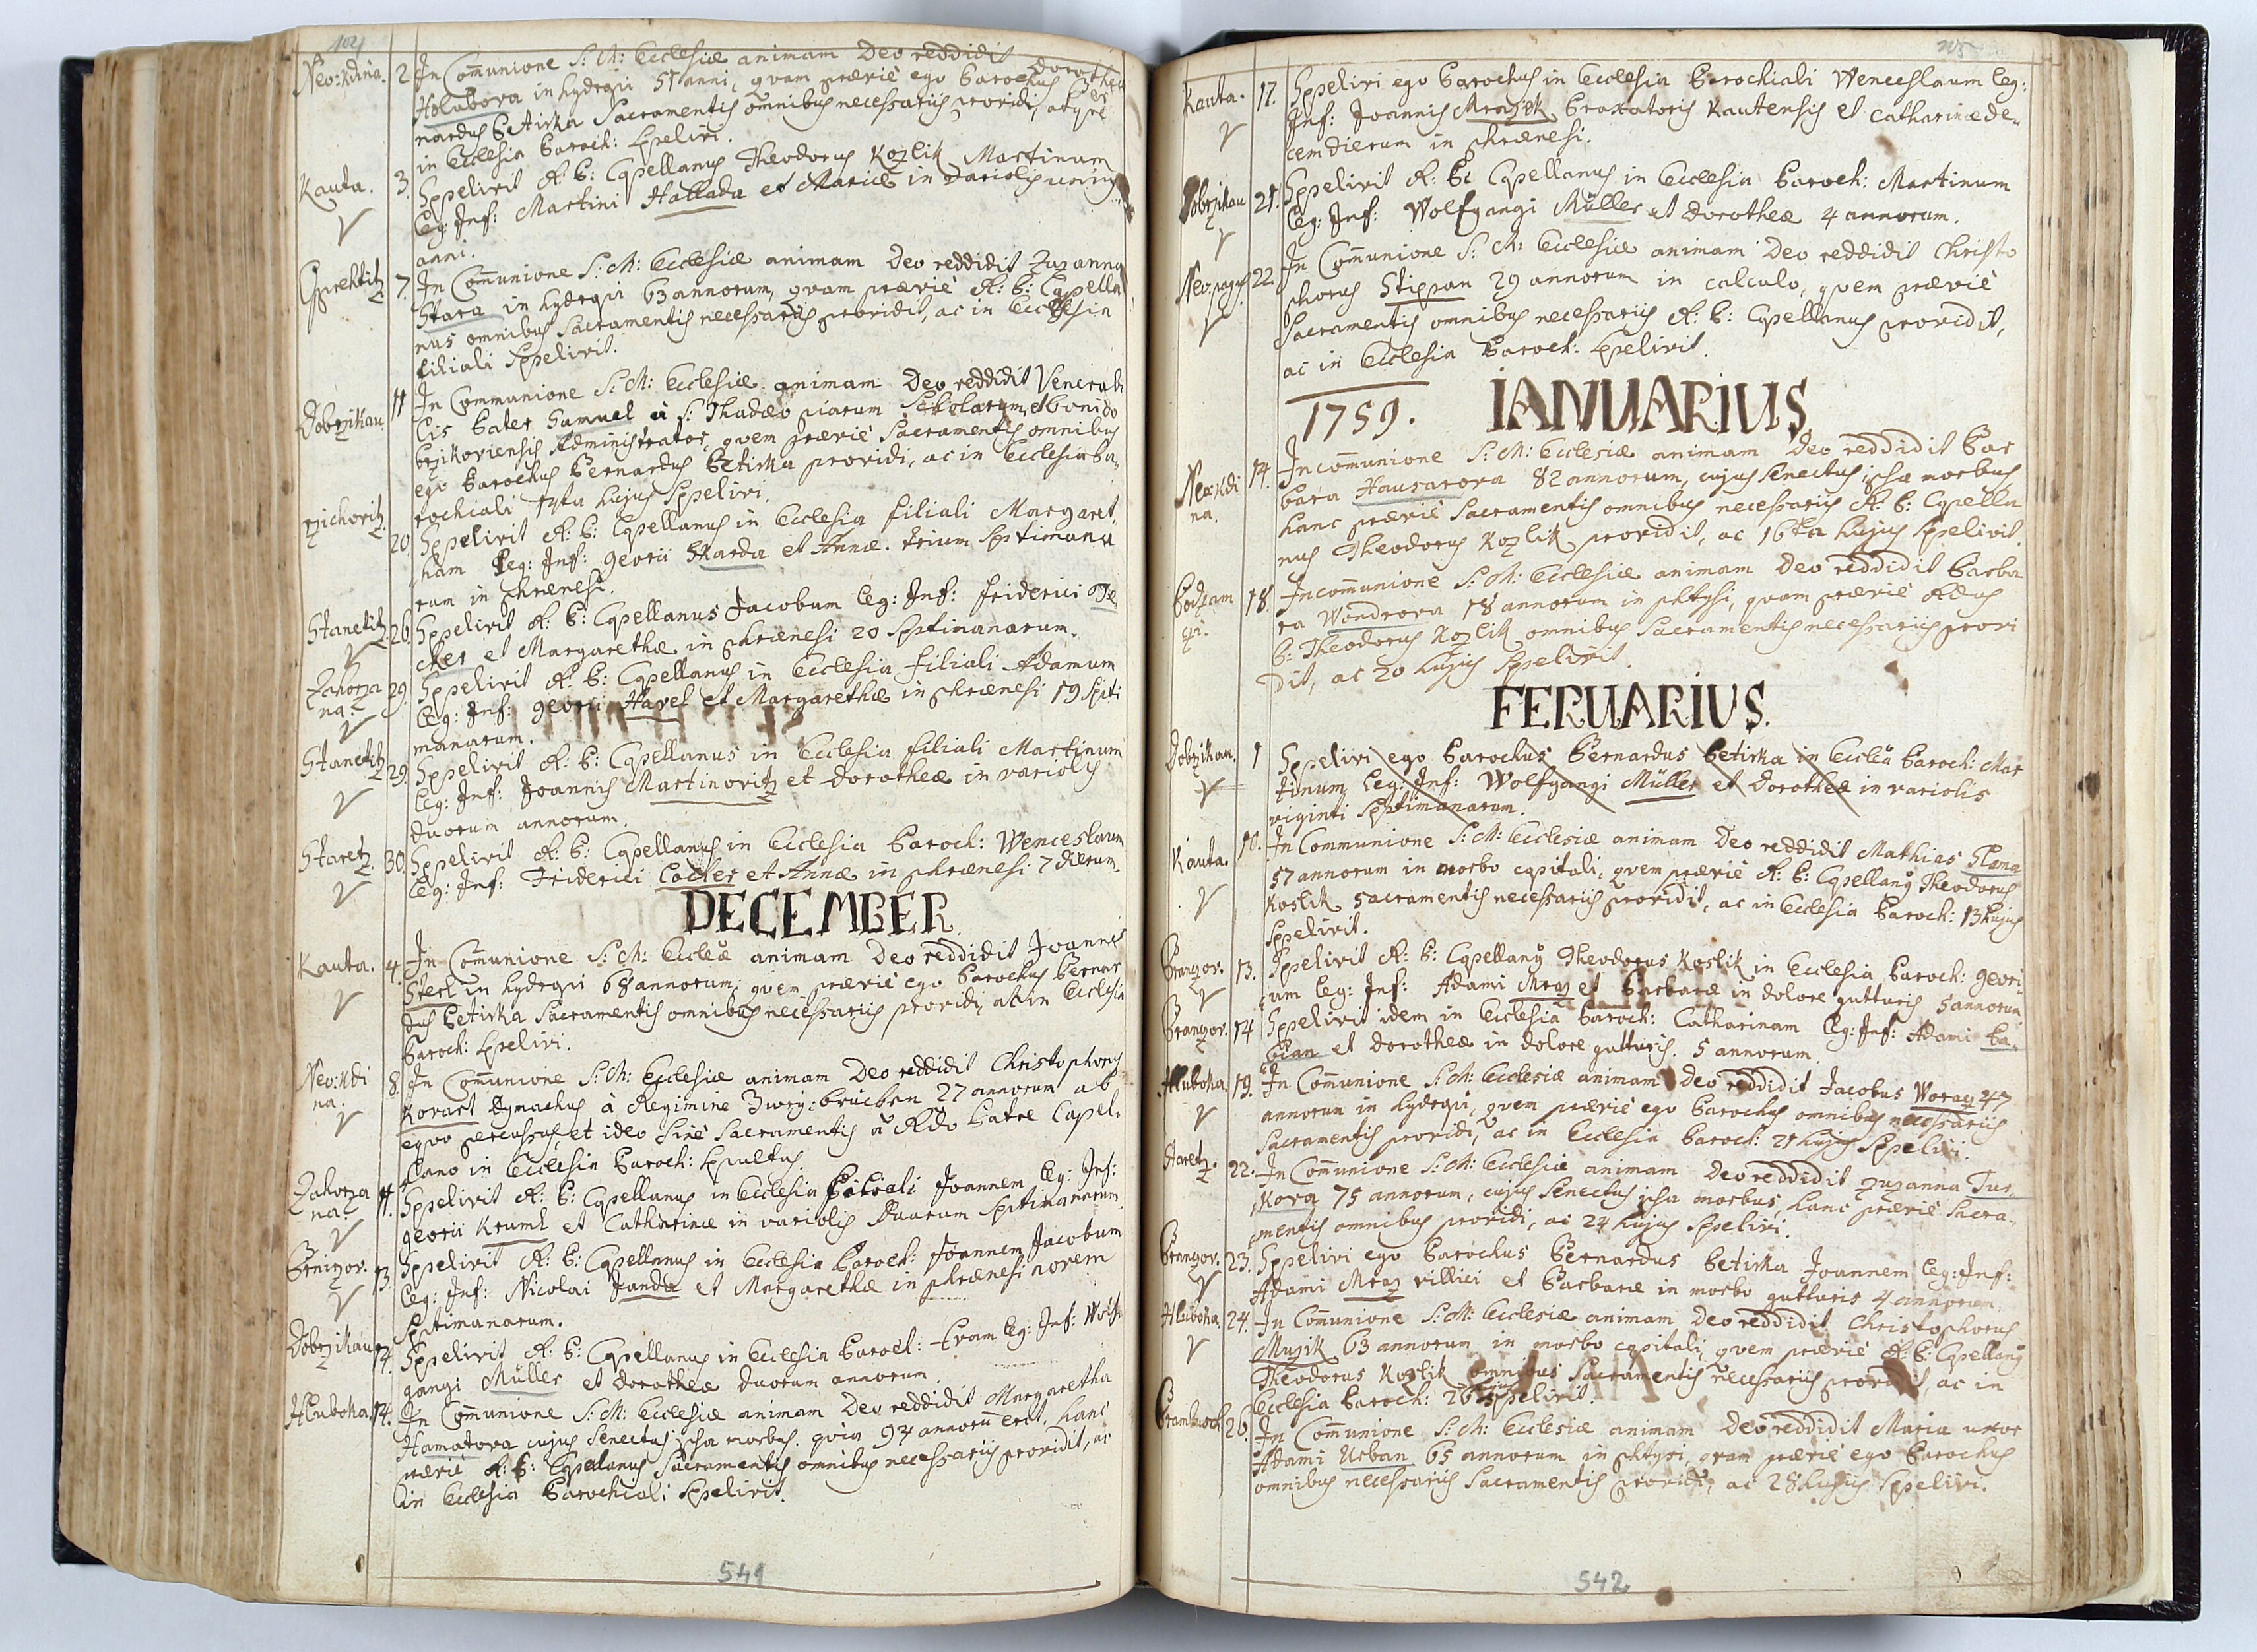 104
Neo: Kdina. 2 In Com̄unione S: M: Ecclesiæ animam Deo reddidit Dorothea
Holubova in hydropi 51 anni, qvam præviè ego Parochus Ber
nardus Petirka Sacramentis omnibus necessariis providi, atqve
in Ecclesia Paroch: Sepelivi.
Kauta. 3. Sepelivit R: P: Capellanus Theodorus Kozlik Martinum
leg: Inf: Martini Hallada et Mariæ in variolis unius
anni.
7. In Com̄unione S: M: Ecclesiæ animam Deo reddidit Zuzanna
Stara in hydropi 63 annorum, qvam præviè R: P: Capella
nus omnibus Sacramentis necessariis providit, ac in Ecclesia
filiali Sepelivit.
Dobrzikau. 11 In Communione S: M: Ecclesiæ animam Deo reddidit Venerabi
lis Pater Samuel à S: Thadæo piarum Scholarum, et boni do
brzikoviensis Administrator, qvem præviè Sacramentis omnibus
ego Parochus Bernardus Petirka providi, ac in Ecclesia Pa,
rochiali 13ta hujus Sepelivi.
Rzichovitz. 20. Sepelivit R: P: Capellanus in Ecclesia filiali Margaret,
ham leg: Inf: Georii Skarda et Annæ. trium Septimana
rum in phrænesi.
Stanetitz. 26. Sepelivit R: P: Capellanus Jacobum leg: Inf: friderici Be
cker et Margarethæ in phrænesi 20 Septimanarum.
Zahorza
na. 29. Sepelivit R: P: Capellanus in Ecclesia filiali Adamum
leg: Inf: Georii Havel et Margarethæ in phrænesi 19 Septi
manarum.
Stanetitz 29. Sepelivit R: P: Capellanus in Ecclesia filiali Martinum
leg: Inf: Joannis Martinovitz et Dorotheæ in variolis
duorum annorum.
Staretz. 30. Sepelivit R: P: Capellanus in Ecclesia Paroch: Wenceslaum
leg: Inf: Friderici Locker et Annæ in phrænesi 7 dierum.
DECEMBER
Kauta. 4. In Com̄unione S: M: Eccle͞æ animam Deo reddidit Joannes
Sterl in hydropi 68 annorum, qvem præviè ego Parochus Bernar
dus Petirka Sacramentis omnibus necessariis providi, ac in Ecclesia
Paroch: Sepelivi.
Neo: Kdi
na. 8. In Com̄unione S: M: Ecclesiæ animam Deo reddidit Christophorus
Kovart Dymachus à Regimine Zweÿ:brücken 27 annorum ab
eqvo percussus, et ideo Sine Sacramentis à Rdo Patre Capel,
lano in Ecclesia Paroch: Sepultus.
Zahorza
na. 11. Sepelivit R: P: Capellanus in Ecclesia filiali Joannem leg: Inf:
Georii Kruml et Catharinæ in variolis Duarum Septimanarum.
13. Sepelivit R: P: Capellanus in Ecclesia Paroch: Joannem Jacobum
leg: Inf: Nicolai Janda et Margarethæ in phrænesi novem
Septimanarum.
Dobrzikau 14. Sepelivit R: P: Capellanus in Ecclesia Paroch: Evam leg: Inf: Wolf,
gangi Müller et Dorotheæ duorum annorum.
Hluboka. 14. In Com̄unione S: M: Ecclesiæ animam Deo reddidit Margaretha
Hamatova cujus Senectus ipsa morbus. qvia 94 annorū erat. hanc
præviè R: P: Capellanus Sacramentis omnibus necessariis providit, ac
in Ecclesia Parochiali Sepelivit.
541
Kauta. 17. Sepelivi ego Parochus in Ecclesia Parochiali Wenceslaum leg:
Inf: Joannis Mrazik Braxatoris Kautensis et Catharinæ de,
cem dierum in phrænesi.
Dobrzikau 21. Sepelivit R: P: Capellanus in Ecclesia Paroch: Martinum
leg: Inf: Wolfgangi Müller et Dorotheæ 4 annorum.
Neo pagus 22. In Com̄unione S: M: Ecclesiæ animam Deo reddidit Christo
phorus Stippan 29 annorum in calculo, qvem præviè
Sacramentis omnibus necessariis R: P: Capellanus providit,
ac in Ecclesia Paroch: Sepelivit.
1759. IANUARIUS
Neo: Kdi
na. 14. In com̄unione S: M: Ecclesiæ animam Deo reddidit Bar
bara Hausarova 82 annorum, cujus Senectus ipsa morbus
hanc præviè Sacramentis omnibus necessariis R: P: Capella
nus Theodorus Kozlik providit, ac 16ta hujus Sepelivit.
18. In com̄unione S: M: Ecclesiæ animam Deo reddidit Barba
ra Wondrova 18 annorum in phtysi, qvam præviè Rdus
P: Theodorus Kozlik omnibus Sacramentis necessariis provi
dit, ac 20 hujus Sepelivit.
FERUARIUS.
Dobrzikau. 1 Sepelivi ego Parochus Bernardus Petirka in Eccle͞a Paroch: Mar
tinum leg: Inf: Wolfgangi Müller et Dorotheæ in variolis
viginti Septimanarum.
Kauta. 10. In Communione S: M: Ecclesiæ animam Deo reddidit Mathias Slana
57 annorum in morbo capitali, qvem præviè R: P: Capellanꝰ Theodorus
Koslik Sacramentis necessariis providit, ac in Ecclesia Paroch: 13 hujus
Sepelivit.
Branzov. 13. Sepelivit R: P: Capellanꝰ Theodorus Koslik in Ecclesia Paroch: Geori,
um leg: Inf: Adami Mraz et Barbaræ in dolore gutturis 5 annorum
Branzov. 14 Sepelivit idem in Ecclesia Paroch: Catharinam leg: Inf: Adami Ba,
bian et Dorotheæ in dolore gutturis. 5 annorum.
Hluboka 19. In Com̄unione S: M: Ecclesiæ animam Deo reddidit Jacobus Woraz 47
annorum in hydropi, qvem præviè ego Parochus omnibus necessariis
Sacramentis providi, ac in Ecclesia Paroch: 21 hujus Sepelivi.
Staretz. 22. In Com̄unione S: M: Ecclesiæ animam Deo reddidit Zuzanna Tur,
kova 75 annorum, cujus Senectus ipsa morbus, hanc præviè Sacra,
mentis omnibus providi, ac 24 hujus Sepelivi.
Branzov. 23. Sepelivi ego Parochus Bernardus Petirka Joannem leg: Inf:
Adami Mraz villici et Barbaræ in morbo gutturis 4 annorum.
Hluboka. 24. In Com̄unione S: M: Ecclesiæ animam Deo reddidit Christophorus
Muzik 63 annorum in morbo capitali, qvem præviè R: P: Capellanꝰ
Theodorus Koslik omnibus Sacramentis necessariis providit, ac in
Ecclesia Paroch: 26 hujus Sepelivit.
26. In Com̄unione S: M: Ecclesiæ animam Deo reddidit Maria uxor
Adami Urban 65 annorum in phtysi, qvam præviè ego Parochus
omnibus necessariis Sacramentis providi, ac 28 hujus Sepelivi.
542